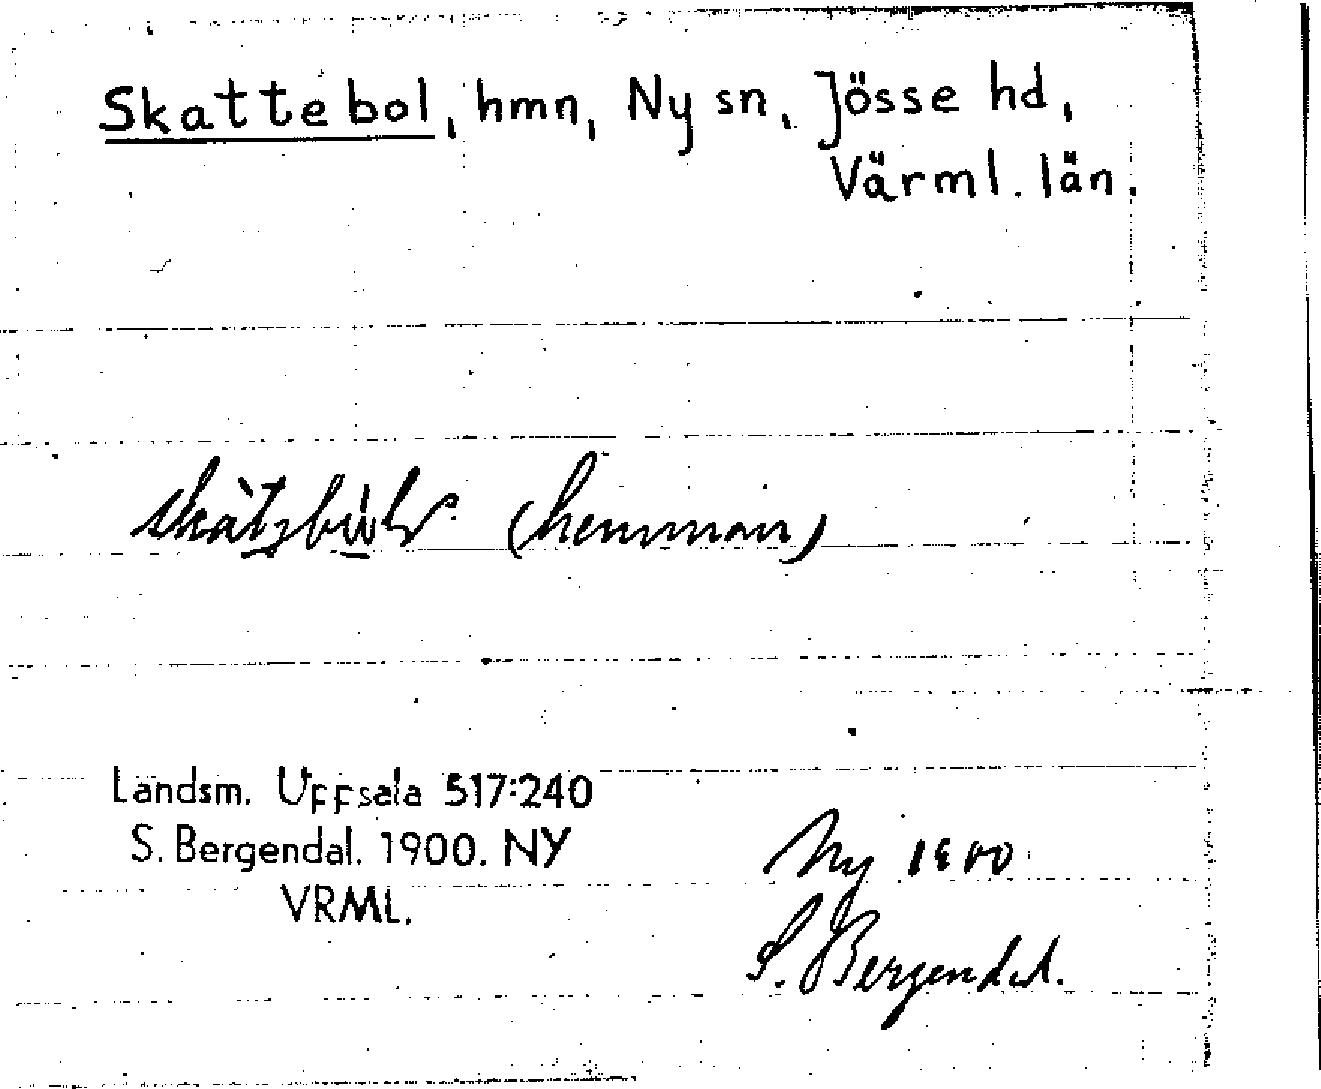 Skattebol, hmn, Ny sn, Jösse hd,
Värml. län.
(hemman)
Landsm. Uppsala 517:240
S. Bergendal. 1900. NY
VRML.
Ny 1900
S. Bergendal.